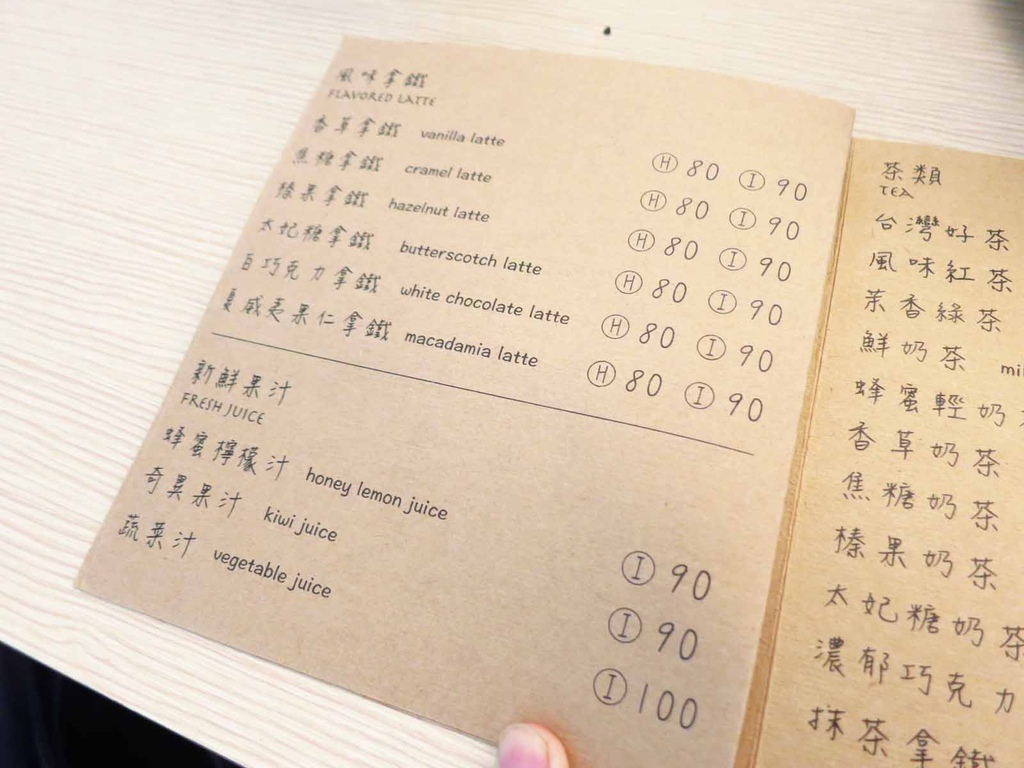 風味拿鐵
FLAVORED LATTE
香草拿鐵 vanilla latte Ⓗ 80 Ⓘ 90
焦糖拿鐵 cramel latte Ⓗ 80 Ⓘ 90
榛果拿鐵 hazelnut latte Ⓗ 80 Ⓘ 90
太妃糖拿鐵 butterscotch latte Ⓗ 80 Ⓘ 90
白巧克力拿鐵 white chocolate latte Ⓗ 80 Ⓘ 90
夏威夷果仁拿鐵 macadamia latte Ⓗ 80 Ⓘ 90
新鮮果汁
FRESH JUICE
蜂蜜檸檬汁 honey lemon juice Ⓘ 90
奇異果汁 kiwi juice Ⓘ 90
蔬菜汁 vegetable juice Ⓘ 100
茶類
TEA
台灣好茶
風味紅茶
茉香綠茶
鮮奶茶
蜂蜜輕奶
香草奶茶
焦糖奶茶
榛果奶茶
太妃糖奶茶
濃郁巧克力
抹茶拿鐵